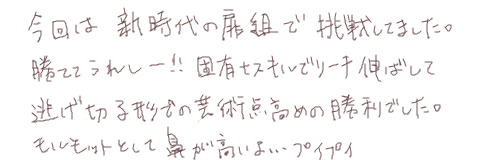 今回は 新時代の扉組で 挑戦してました。
勝ててうれしー!! 固有とスキルでリーチ伸ばして
逃げ切る形での芸術点高めの勝利でした。
モルモットとして鼻が高いよい…プイプイ